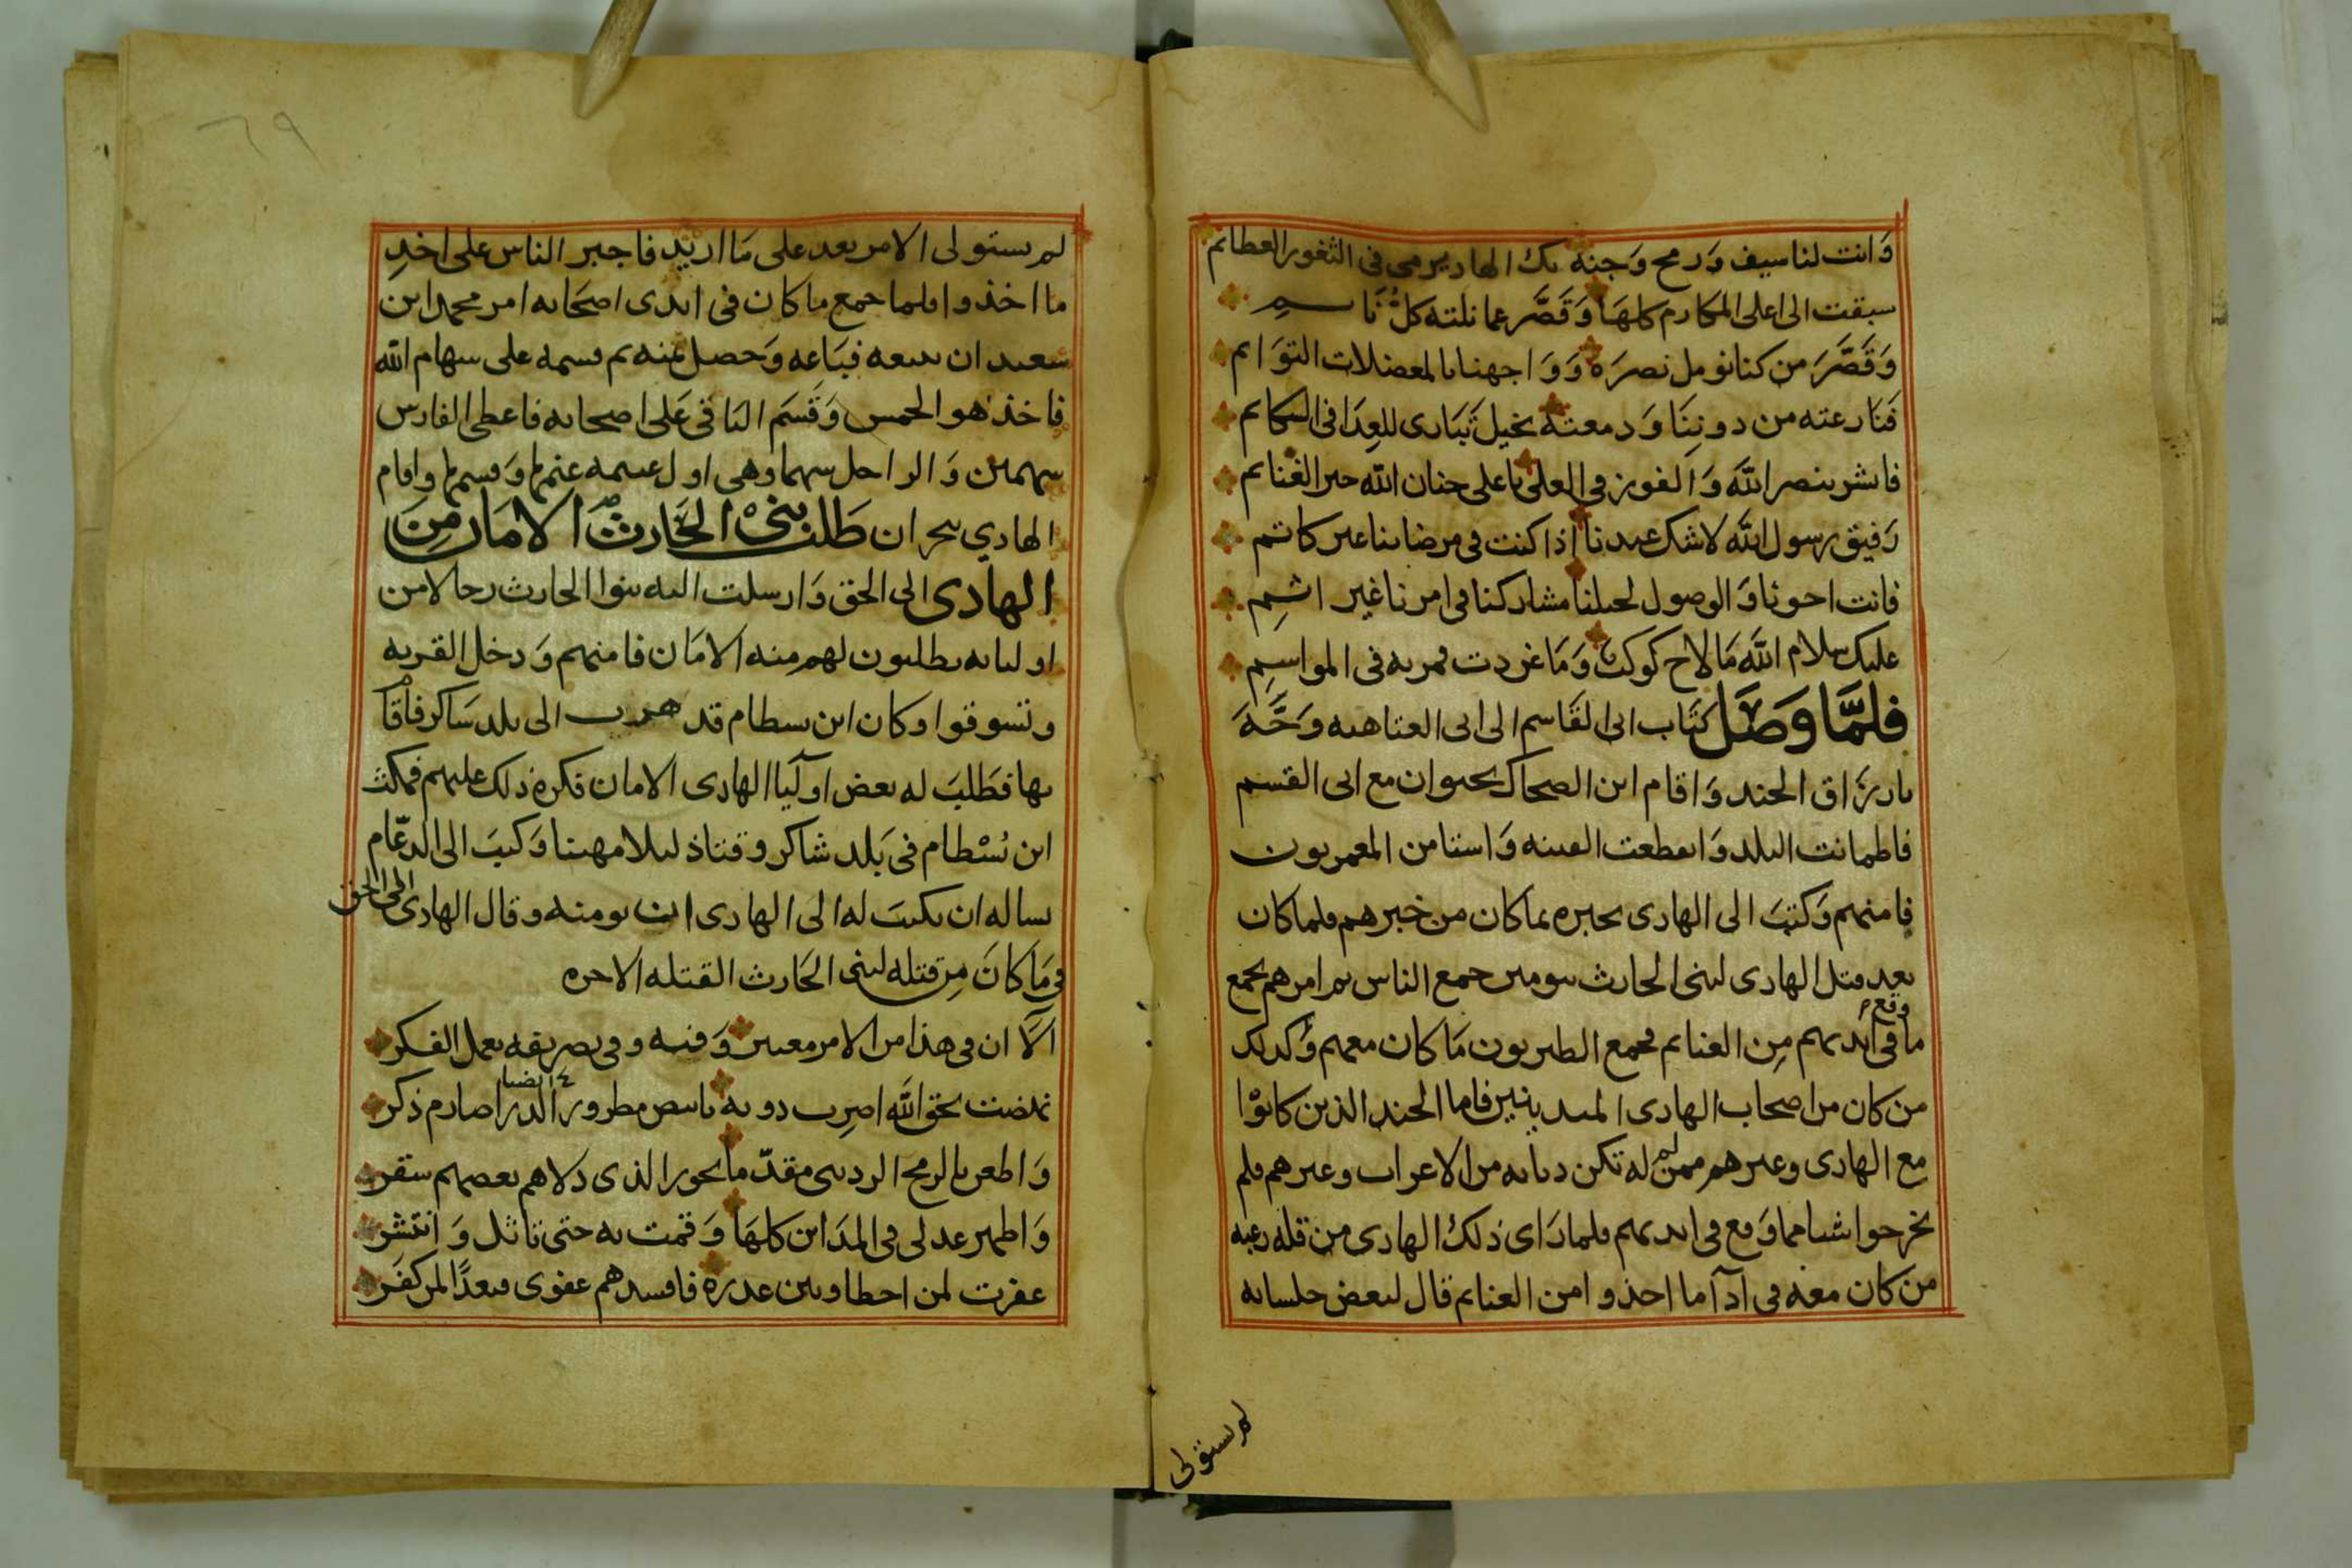 وَانت لنا سيف وَرمح وَجنه بك الهاد يرمى فى الثغور العظايم
سبقت الى اعلى المكارم كلهَا وَقَصَّر عما نلته كلُّ نَاسم
وَقَصَّرَ من كنا نومل نصرَه وَوَاجهنا بالمعضلات التوَايم
فنارعته من دوننَا وَدمعته بخيل تَبَارى للعِدَا فى السكايم
فابشر بنصر اللَّه وَالفوز فى العلى باعلى جنان الله خير الغنايم
رَفيق رسول اللَّه لا شك عندنا اذا كنت فى مرضاتنا غير كاتم
فانت اخونا وَالوصول لحبلنا مشاركنا فى امرنا غير اثمِ
عليك سلام اللَّه مَا لاح كوكب وَمَا غردت قمريه فى المواسِمِ
فلمَّا وَصَل كتَاب ابى القَاسم الى ابى العتاهيه وَجَّهَ
بارزَاق الجند وَاقام ابن الضحاك بحيوان مع ابى القسم
فاطمانت البلد وَانقطعت الفتنه وَاستامن المعمريون
فامنهم وَكتبَ الى الهادى يخبره بما كان من خبرهم فلما كان
بعد قتل الهادى لبنى الحارث بيومين جمع الناس ثم امرهم بجمع
ما وقع فى ايديهم مِن الغنايم فجمع الطبريون مَا كان معهم وَكذلك
من كان من اصحاب الهادى المدينيين فاما الجند الذين كانوْا
مع الهادى وغيرهم ممن لم له تكن ديانه من الاعراب وغيرهم فلم
يخرجوا شيا مما وَقع فى ايديهم فلما رَاى ذلك الهادى من قله رغبه
من كان معه فى ادآ ما اخذوا من الغنايم قال لبعض جلسايه
لم يستولى
لم يستولى الامر بعد على مَا اريد فاجبر الناس على اخذِ
ما اخذوا فلما جمع ما كان فى ايدى اصحَابه امر محمد ابن
سَعيد ان يبيعه فبَاعه وَحصل ثمنه ثم قسمه على سهام الله
فاخذ هو الخمس وَقَسَم البَاقى عَلى اصحابه فاعطى الفارس
سهمين وَالراجل سهما وهى اول غنيمه غنمها وَقسمها واقام
الهادي بنجران طَلب بنى الحَارث الامَان مِنَ
الهادى الى الحق وَارسلت اليه بنوا الحارث رجالا من
اوليايه يطلبون لهم منه الامَان فامنهم وَدخل القريه
وتسوقوا وكان ابن بسطام قد هرب الى بلد شَاكر فاقام
بها فطَلبَ له بعض اوليآ الهادى الامان فكره ذلك عليهم فمكث
ابن بُسْطام فى بَلد شاكر وقتاذليلا مهينا وَكتبَ الى الدعّام
يساله ان يكتبَ له الى الهادى ان يومنه وقال الهادى الى الحق
فى مَا كانَ مِن قتله لبنى الحَارث القتله الاخره
آلَا ان فى هذا من الامر معتبر وَفيه وفى تصريفه يعمل الفكر
نهضت بحق اللَّه اضرِب دونه بابيض مطرور الذرا ايضا صارم ذكر
وَاطعن بالرمح الردينى مقدّما نحور الذى دلاهم بغضهم سقر
وَاظهر عدلى فى المدَاين كلهَا وَقمت به حتى تاثل وَانتشر
غفرت لمن اخطا وبين عذره فافسدهم عفوى فبعدًا لمن كفَر